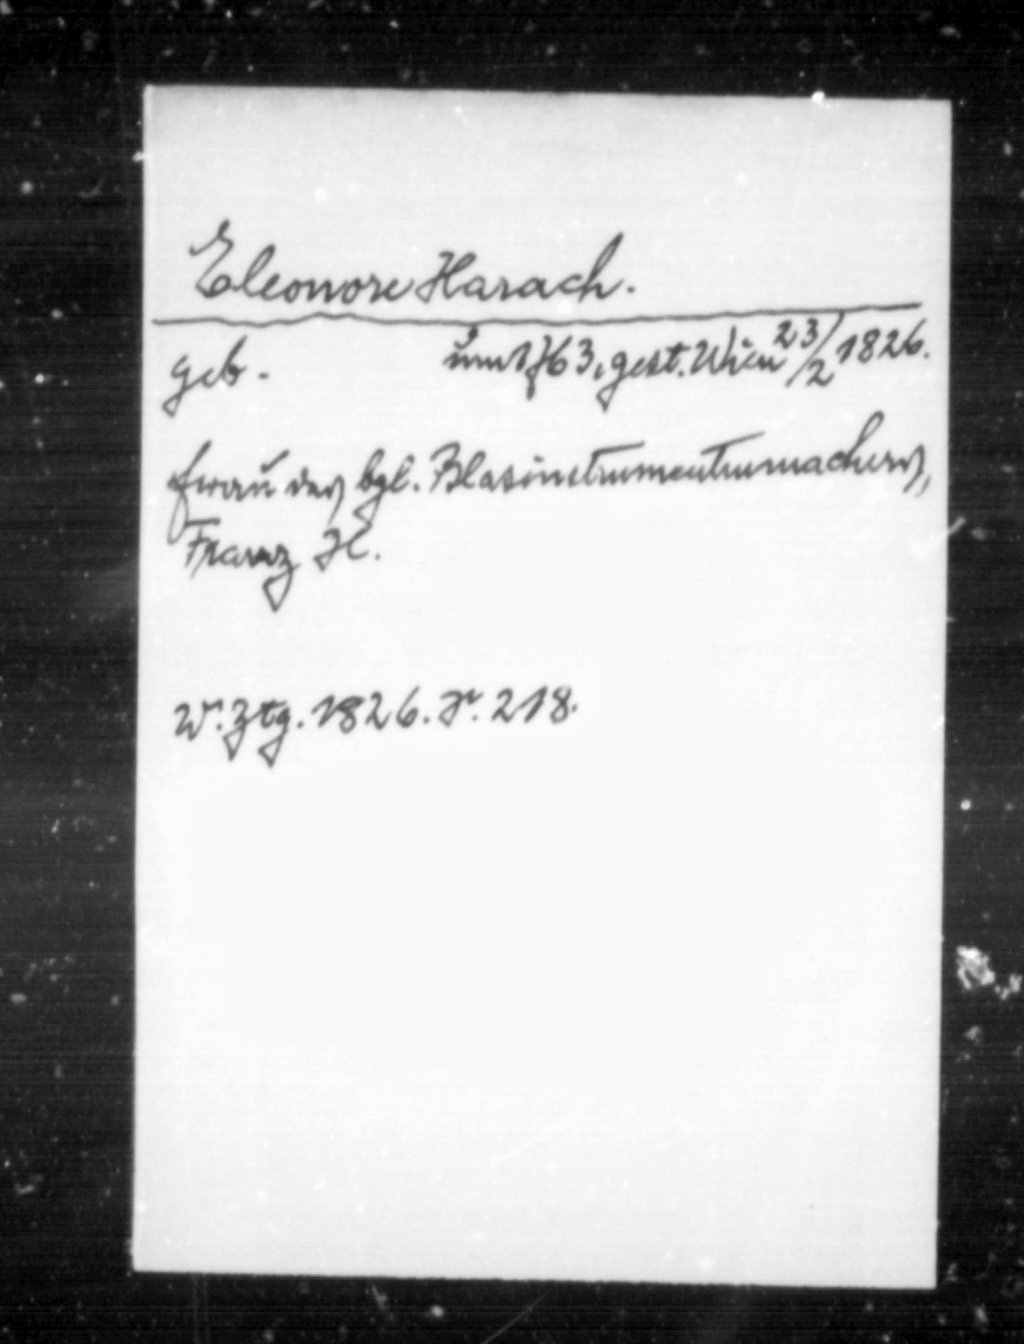 Eleonore Harach.
geb. um 1763, gest. Wien 23/2 1826.
Frau des bgl. Blasinstrumentenmachers,
Franz H.
W. Ztg. 1826. S. 218.